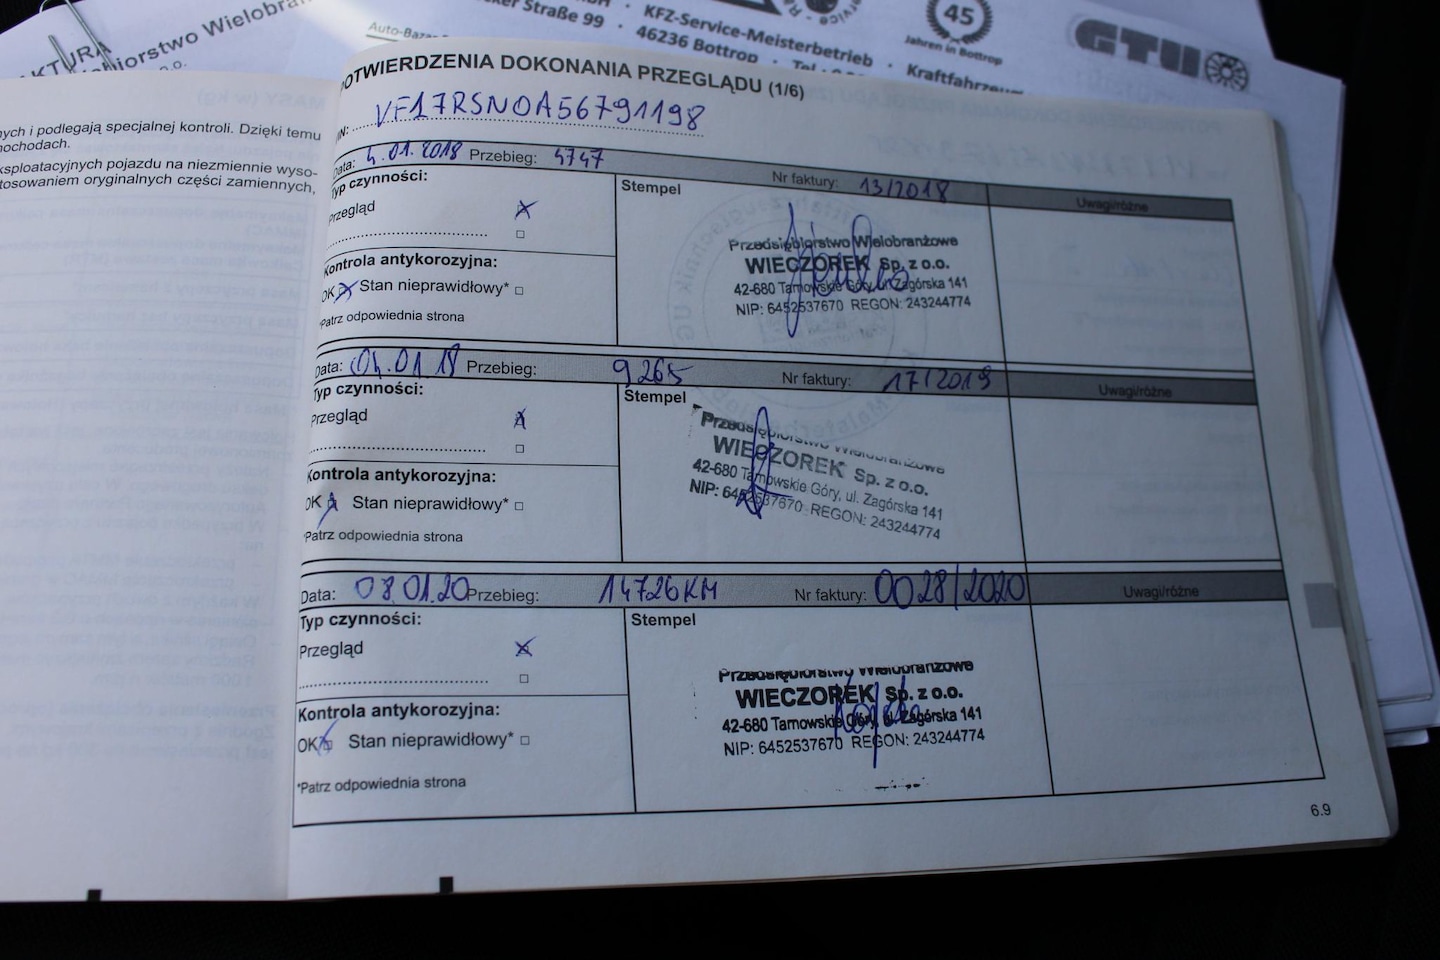 AKTURA
biorstwo Wielobran
Auto-Baza
cker Straße 99 · KFZ-Service-Meisterbetrieb ·
46236 Bottrop · Tel
Kraftfahrzeu
45
Jahren in Bottrop
GTÜ
nych i podlegają specjalnej kontroli. Dzięki temu
mochodach.
ksploatacyjnych pojazdu na niezmiennie wyso-
tosowaniem oryginalnych części zamiennych,
POTWIERDZENIA DOKONANIA PRZEGLĄDU (1/6)
VIN: VF17RSN0A56791198
Data: 4.01.2018 Przebieg: 4747 Nr faktury: 13/2018 Uwagi/różne
Typ czynności: Stempel
Przegląd X
Kontrola antykorozyjna:
OK X Stan nieprawidłowy* □
*Patrz odpowiednia strona
Przedsiębiorstwo Wielobranżowe
WIECZOREK Sp. z o.o.
42-680 Tarnowskie Góry, ul. Zagórska 141
NIP: 6452537670 REGON: 243244774
Data: 04.01 18 Przebieg: 9265 Nr faktury: 17/2019 Uwagi/różne
Typ czynności: Stempel
Przegląd
Kontrola antykorozyjna:
OK Stan nieprawidłowy* □
*Patrz odpowiednia strona
Przedsiębiorstwo Wielobranżowe
WIECZOREK Sp. z o.o.
42-680 Tarnowskie Góry, ul. Zagórska 141
NIP: 6452537670 REGON: 243244774
Data: 08.01.20 Przebieg: 14726KM Nr faktury: 0028/2020 Uwagi/różne
Typ czynności: Stempel
Przegląd X
Kontrola antykorozyjna:
OK X Stan nieprawidłowy* □
*Patrz odpowiednia strona
Przedsiębiorstwo Wielobranżowe
WIECZOREK Sp. z o.o.
42-680 Tarnowskie Góry, ul. Zagórska 141
NIP: 6452537670 REGON: 243244774
6.9